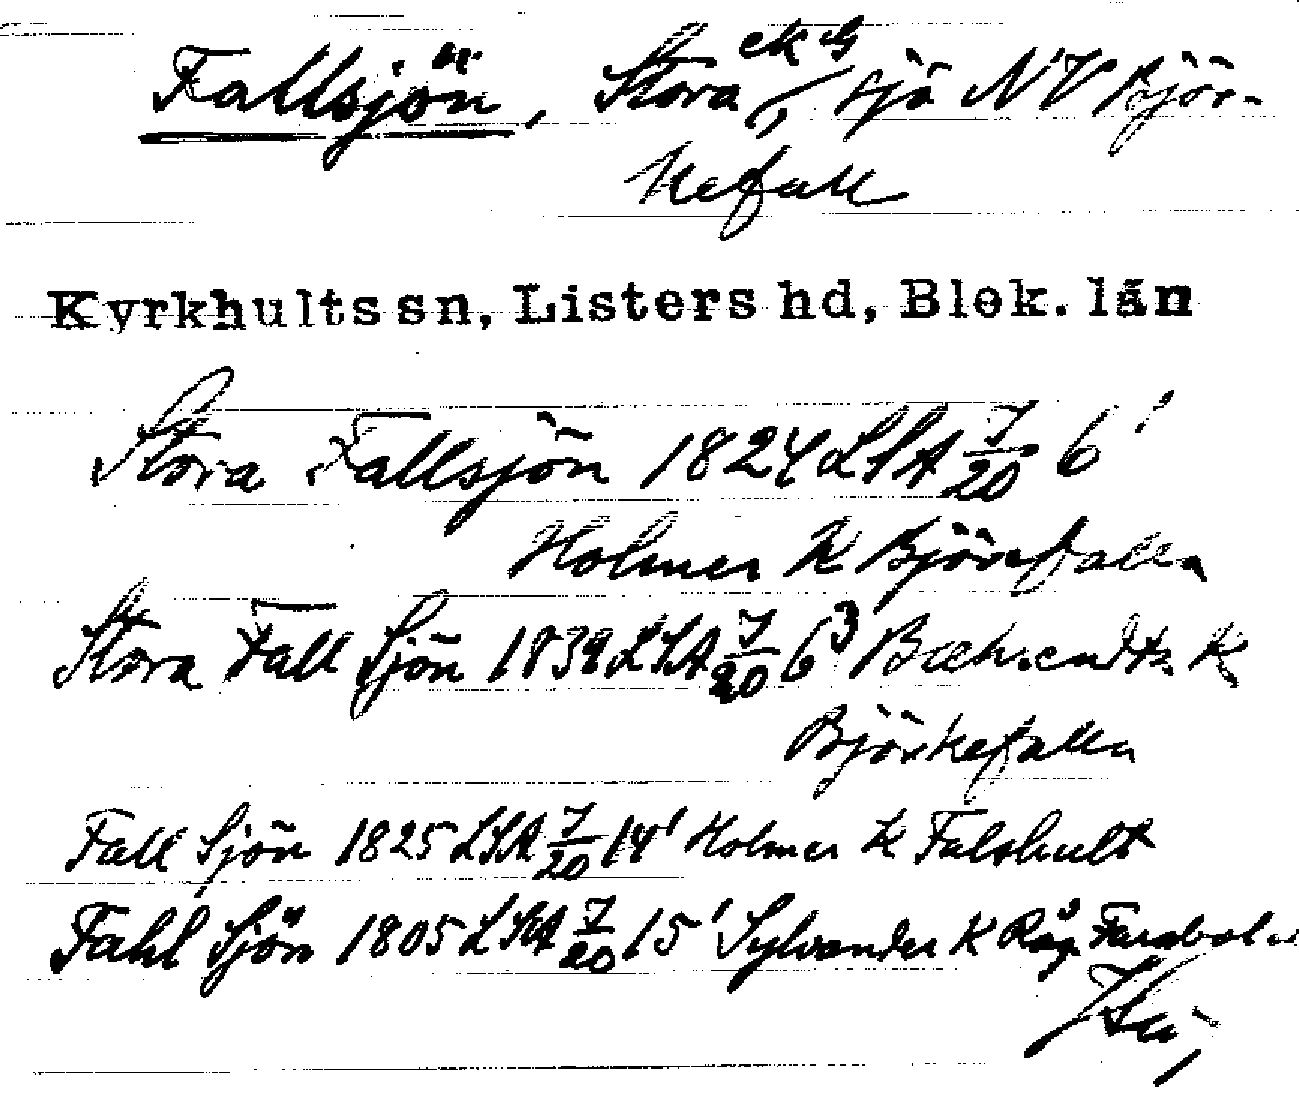 Fallsjön, Stora ek G, sjö NV Björ-
kefall
Kyrkhults sn, Listers hd, Blek. län
Stora Fallsjön 1824 LSA J/20 6¹
Holmer K Björkefalla
Stora Fall Sjön 1839 LSA J/20 6³ Baehrendtz K
Björkefalla
Fall Sjön 1825 LSA J/20 14¹ Holmer K Falshult
Fahl Sjön 1805 LSA J/20 15¹ Sylvander K Råg Farabol